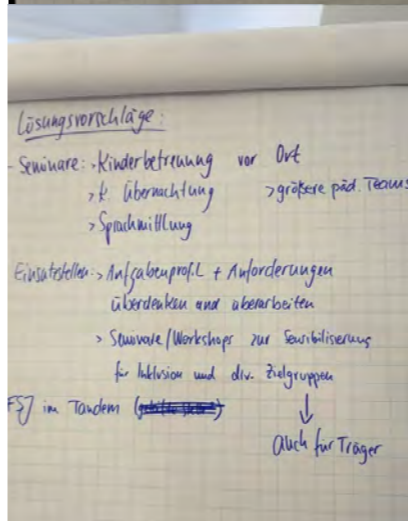 Lösungsvorschläge:
- Seminare: > Kinderbetreuung vor Ort
> k. Übernachtung > größere päd. Teams
> Sprachmittlung
Einsatzstellen: > Aufgabenprofil + Anforderungen
überdenken und überarbeiten
> Seminare/Workshops zur Sensibilisierung
für Inklusion und div. Zielgruppen
FSJ im Tandem
auch für Träger